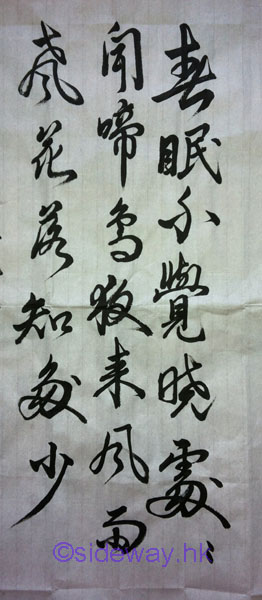 春眠不覺曉處〻
聞啼鳥夜来風雨
聲花落知多少
©sideway.hk